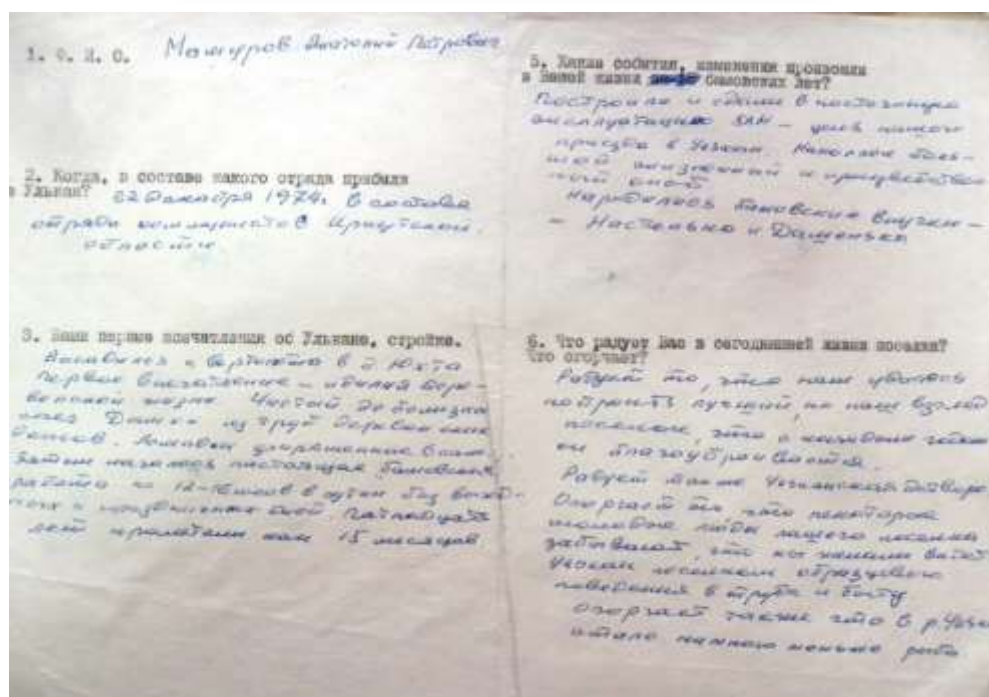 1. Ф. И. О. Анатолий Петрович
2. Когда, в составе какого отряда прибыли
в Улькан?
22 декабря 1974г. в составе
отряда коммунистов Иркутской
области
3. Ваши первые впечатления об Улькане, стройке.
Высадился с вертолета в д Юхта
Первое впечатление – идиллия дере-
венской жизни. Чистый до
снег. Дымки из труб деревенских
домов.
Затем началась настоящая бамовская
работа по 12-16 часов в сутки без выход-
ных и праздничных дней. Пятнадцать
лет пролетели как 15 месяцев
5. Какие события, изменения произошли
в Вашей жизни бамовских лет?
Построили и сдали в постоянную
эксплуатацию БАМ – цель нашего
приезда в Улькан. Накоплен боль-
шой жизненный и
опыт
Народились бамовские внучки –
– Настенька и Дашенька
6. Что радует Вас в сегодняшней жизни поселка?
Что огорчает?
Радует то, что нам удалось
построить лучший, на наш взгляд
поселок, что он с каждым годом
благоустраивается.
Радует также Ульканская детвора
Огорчает то, что некоторые
молодые люди нашего поселка
забывают, что мы желаем видеть
Улькан поселком образцового
поведения в труде и быту
Огорчает также что в р.
стало намного меньше рыбы